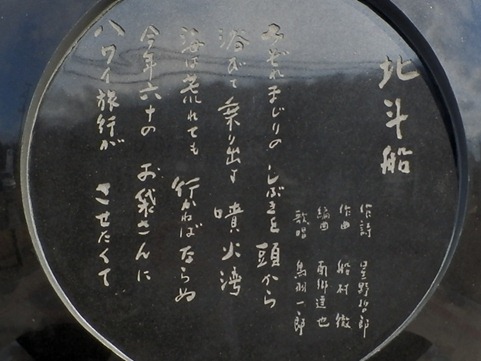 北斗船
作詩 星野哲郎
作曲 船村徹
編曲 南郷達也
歌唱 鳥羽一郎
みぞれまじりの しぶきを頭から
浴びて乗り出す 噴火湾
海は荒れても 行かねばならぬ
今年六十の お袋さんに
ハワイ旅行が させたくて